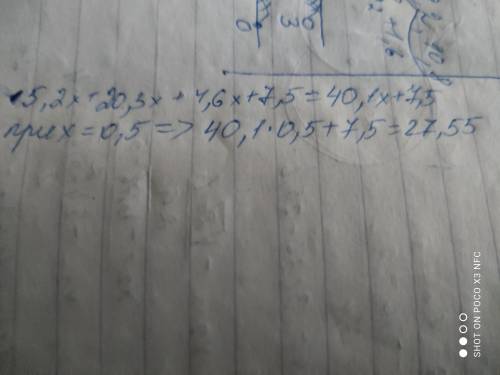 15,2x+20,3x+4,6x+7,5=40,1x+7,5
при x=0,5=> 40,1·0,5+7,5=27,55
SHOT ON POCO X3 NFC